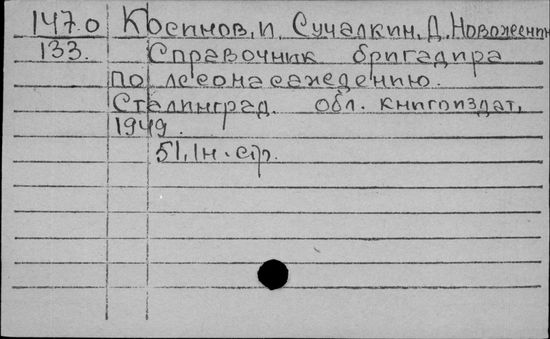 147.0 Косинов, И. Сучалкин, Д. Новоженин
133. Справочник бригадира
по лесонасаждению.
Сталинград. обл. книгоиздат,
1949.
51, 1н. стр.